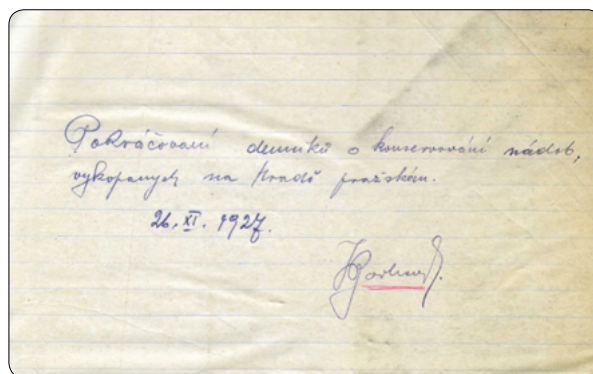 Pokračování denníku o konservování nádob,
vykopaných na Hradě pražském.
26. XI. 1927.